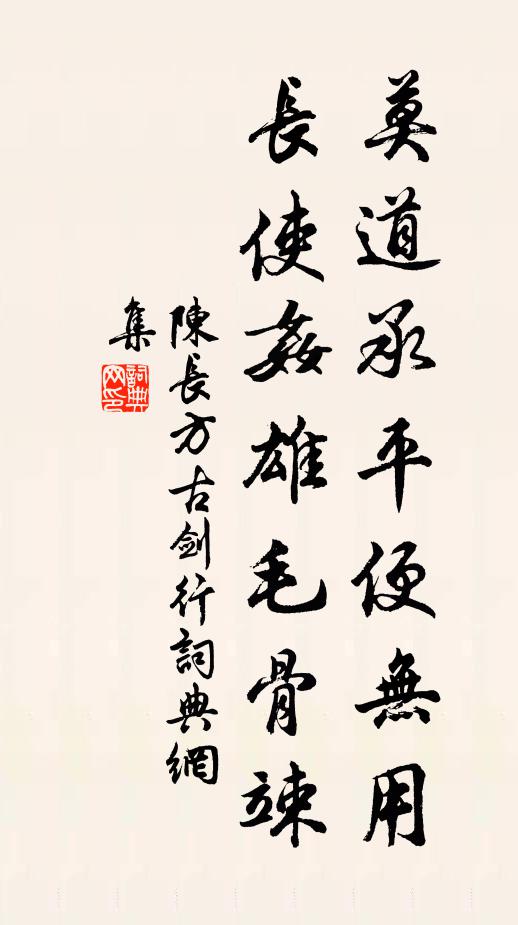 莫道承平便無用
長使姦雄毛骨竦
陳長方古劍行詞典網
集
詞典网印